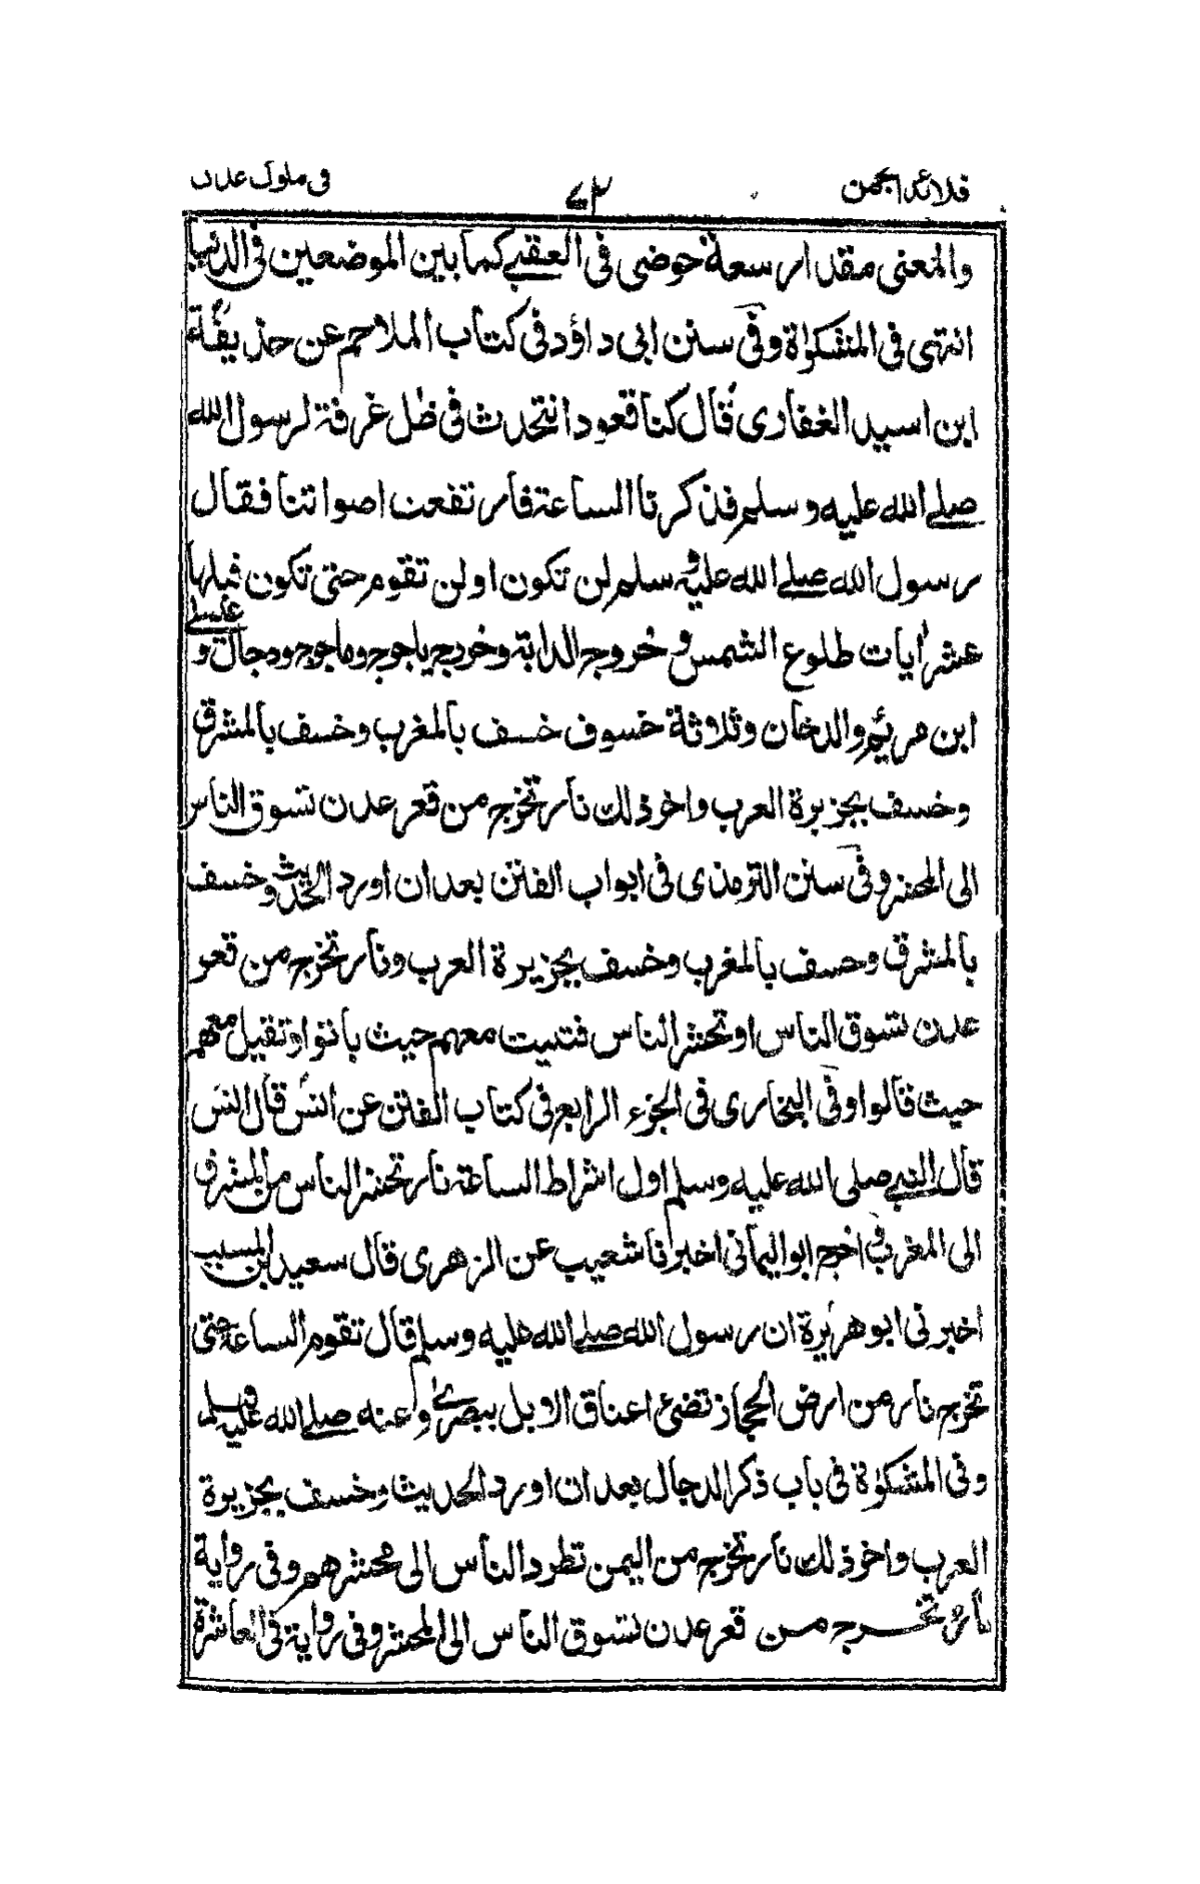 قلائد الجمن ٧٣ في ملوك عدن
والمعنى مقدار سعة حوضى فى العقبى كما بين الموضعين فى الدنيا
انتهى فى المشكوٰة وفى سنن ابى داؤد فى كتاب الملاحم عن حذيفة
ابن اسيد الغفارى قال كنا قعودا نتحدث فى ظل غرفة لرسول الله
صلى الله عليه وسلم فذكرنا الساعة فارتفعت اصواتنا فقال
رسول الله صلى الله عليه وسلم لن تكون اولن تقوم حتى تكون قبلها
عشر أيات طلوع الشمس و خروج الدابة وخروج ياجوج وماجوج ودجال و عيسى
ابن مريم والدخان وثلاثة خسوف خسف بالمغرب وخسف بالمشرق
وخسف بجزيرة العرب واخر ذلك نار تخرج من قعر عدن تسوق الناس
الى المحشر وفى سنن الترمذى فى ابواب الفتن بعد ان اورد الحديث وخسف
بالمشرق وخسف بالمغرب وخسف بجزيرة العرب ونار تخرج من قعر
عدن تسوق الناس او تحشر الناس فتبيت معهم حيث باتوا وتقيل معهم
حيث قالوا وفى البخارى فى الجزء الرابع فى كتاب الفتن عن انس قال انس
قال النبى صلى الله عليه وسلم اول اشراط الساعة نار تحشر الناس من المشرق
الى المغرب اخرج ابو اليمانى اخبرنا شعيب عن الزهرى قال سعيد ابن المسيب
اخبرنى ابو هريرة ان رسول الله صلى الله عليه وسلم قال تقوم الساعة حتى
تخرج نار من ارض الحجاز تضئ اعناق الابل ببصرىٰ وعنه صلى الله عليه وسلم
وفى المشكوٰة فى باب ذكر الدجال بعد ان اورد الحديث وخسف بجزيرة
العرب واخر ذلك نار تخرج من اليمن تطرد الناس الى محشرهم وفى رواية
نار تخرج من قعر عدن تسوق الناس الى المحشر وفى رواية فى العاشرة